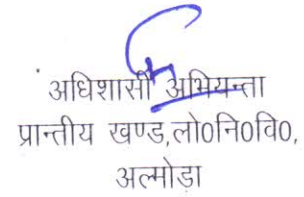 अधिशासी अभियन्ता
प्रान्तीय खण्ड,लो0नि0वि0,
अल्मोड़ा